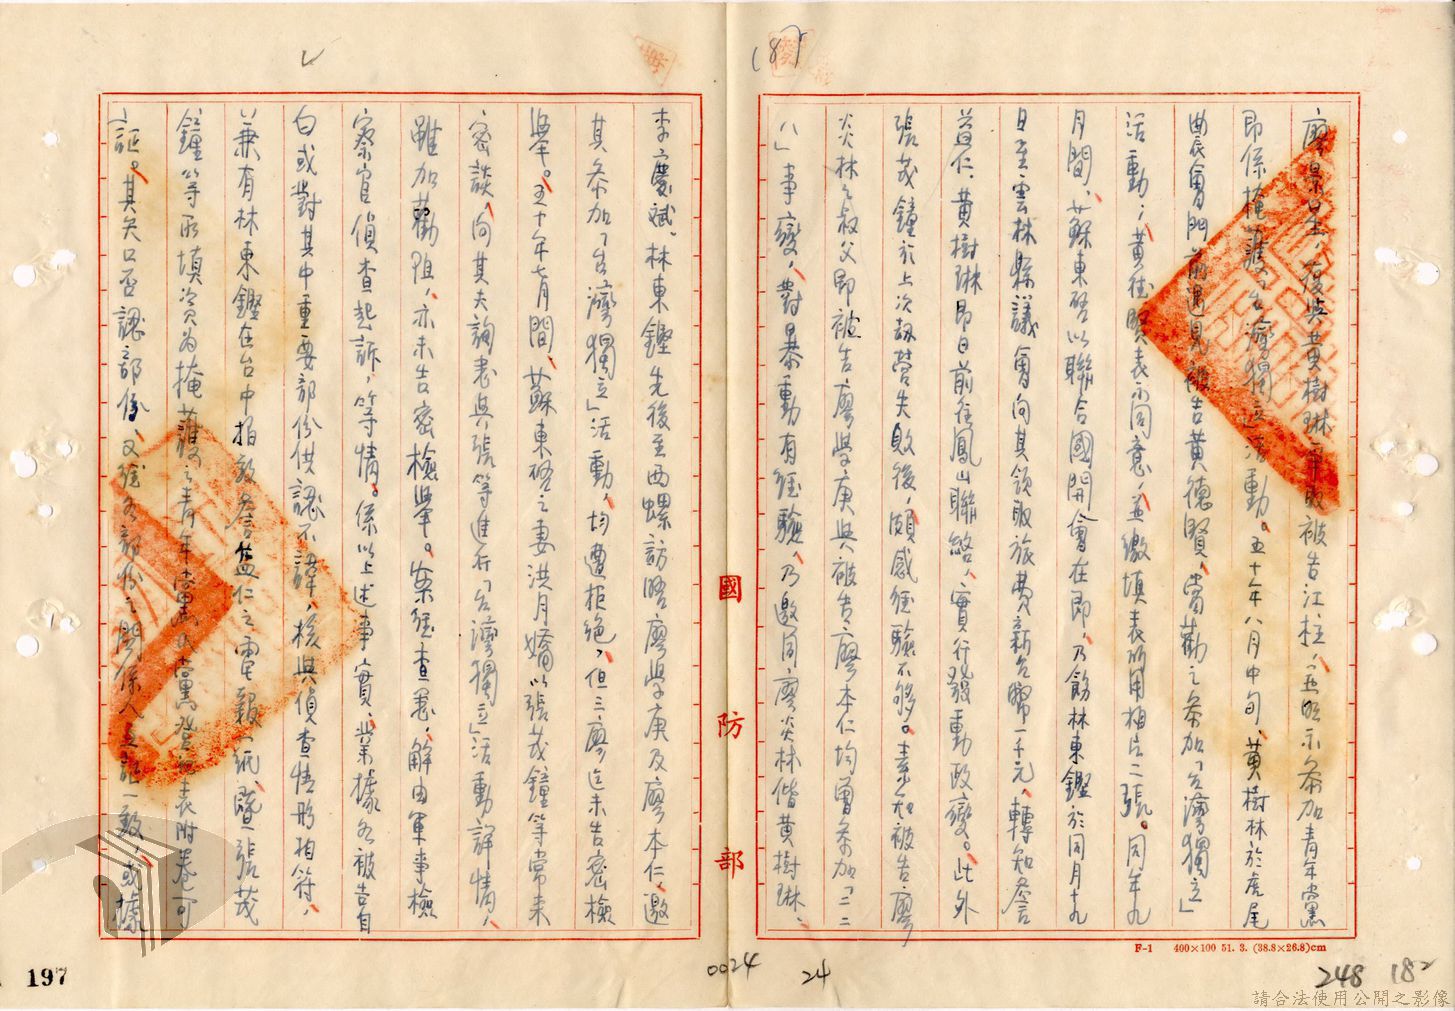 廖景星，復與黃樹琳
被告江柱，並暗示參加青年黨
即係掩護「台灣獨立」活動。五十年八月中旬，黃樹林於虎尾
農會門前遇見被告黃德賢，當勸之參加「台灣獨立」
活動，黃德賢表示同意，並繳填表所用相片二張。同年九
月間，蘇東啓以聯合國開會在即，乃飭林東鏗於同月十九
日至雲林縣議會向其領取旅費新台幣一千元，轉知詹
益仁、黃樹琳即日前往鳳山聯絡，實行發動政變。此外
張茂鐘於上次劫營失敗後，頗感經驗不够。素知被告廖
炎林之叔父即被告廖學庚與被告廖本仁均曾參加「二二
八」事變，對暴動有經驗，乃邀同廖炎林偕黃樹琳、
李慶斌、林東鏗先後至西螺訪晤廖學庚及廖本仁，邀
其參加「台灣獨立」活動，均遭拒絕，但三廖迄未告密檢
舉。五十年七月間，蘇東啓之妻洪月嬌以張茂鐘等常來
密談，向其夫詢悉與張等進行「台灣獨立」活動詳情，
雖加勸阻，亦未告密檢舉。案經查悉，解由軍事檢
察官偵查起訴，等情。係以上述事實，業據各被告自
白或對其中重要部份供認不諱，核與偵查情形相符，
並兼有林東鏗在台中拍致詹益仁之電報一紙，暨張茂
鐘等所填資為掩護之青年黨黨員登記表附卷可
証。其矢口否認部份，又經各部份之關係人互証一致，或據
國防部
F-1 400×100 51. 3. (38.8×26.8)cm
197
0024
24
248
182
請合法使用公開之影像